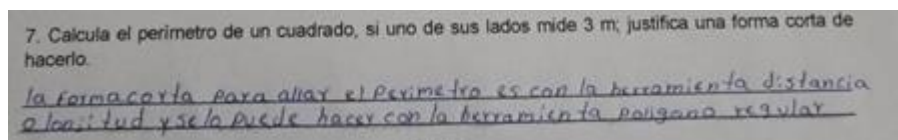 7. Calcula el perimetro de un cuadrado, si uno de sus lados mide 3 m; justifica una forma corta de
hacerlo.
la forma corta para allar el perimetro es con la herramienta distancia
o longitud y se lo puede hacer con la herramienta poligano regular